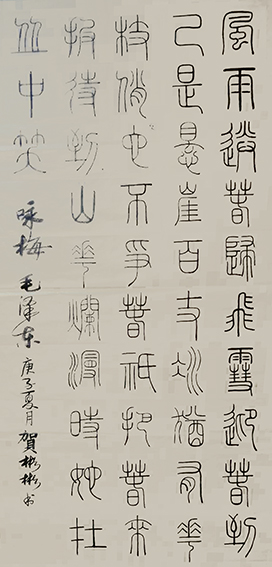 風雨送春歸飛雪迎春到
已是懸崖百丈冰猶有花
枝俏也不爭春祇把春來
报待到山花爛漫時她在
丛中笑
咏梅 毛泽东 庚子夏月 賀彬彬书